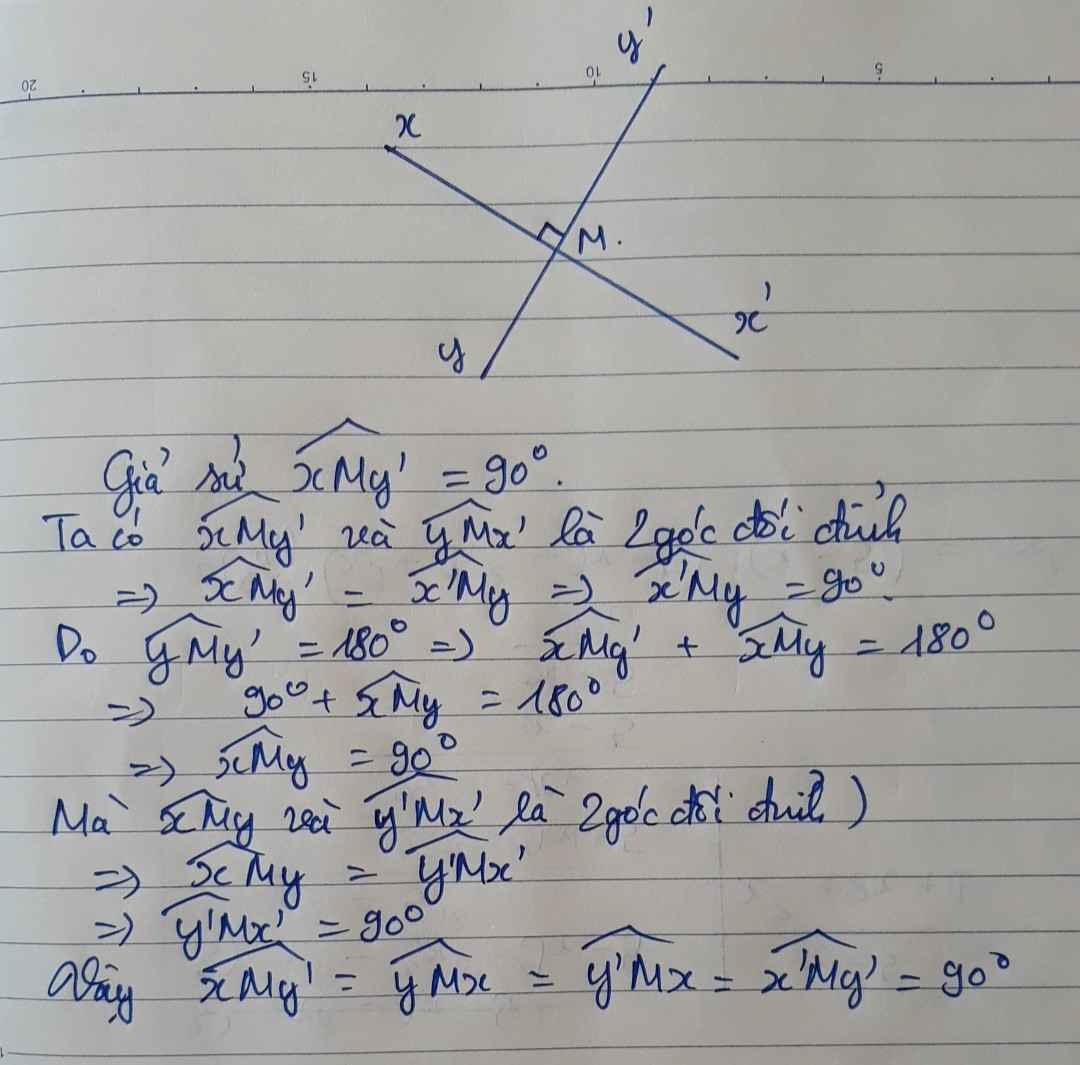 20 15 10 5
y'
x
M.
x'
y
Giả sử \widehat{xMy'} = 90°.
Ta có \widehat{xMy'} và \widehat{yMx'} là 2 góc đối đỉnh
=> \widehat{xMy'} = \widehat{x'My} => \widehat{x'My} = 90°.
Do \widehat{yMy'} = 180° => \widehat{xMy'} + \widehat{xMy} = 180°
=> 90° + \widehat{xMy} = 180°
=> \widehat{xMy} = 90°
Mà \widehat{xMy} và \widehat{y'Mx'} là 2 góc đối đỉnh)
=> \widehat{xMy} = \widehat{y'Mx'}
=> \widehat{y'Mx'} = 90°
Vậy \widehat{xMy'} = \widehat{yMx} = \widehat{y'Mx} = \widehat{x'My'} = 90°